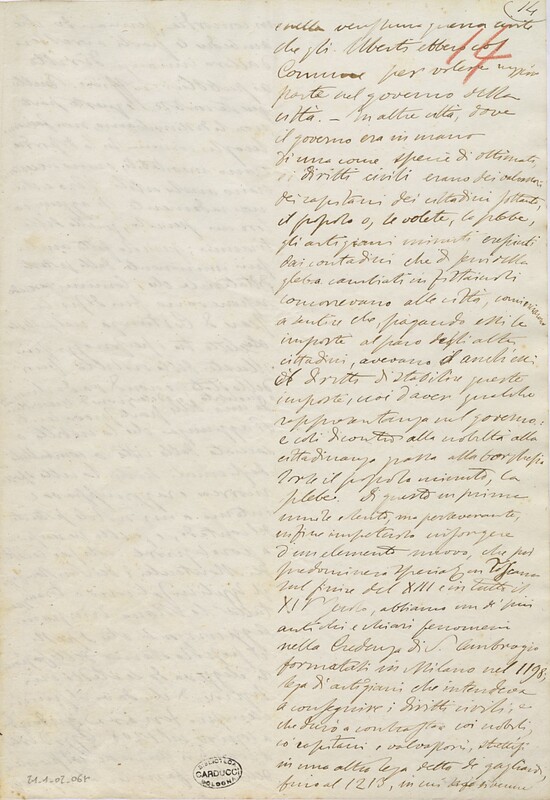 14
14
nella ventenne guerra civile
che gli Uberti ebbero col
Comune per volere maggior
parte nel governo della
città. — In altre città, dove
il governo era in mano
di una come specie di ottimati,
i diritti civili erano dei valvassori
dei capitani dei cittadini soltanto,
il popolo o, se volete, la plebe,
gli artigiani minuti cresciuti
dai contadini che di servi della
gleba cambiati in fittaiuoli
concorrevano alle città, cominciarono
a sentire che, pagando essi le
imposte al paro degli altri
cittadini, avevano
il diritto di stabilire queste
imposte, cioè d'aver qualche
rappresentanza nel governo:
e così di contro alla nobiltà alla
cittadinanza grassa alla borghesia
sorse il popolo minuto, la
plebe. Di questo in prima
umile e lento, ma perseverante,
infine impetuoso insorgere
d'un elemento nuovo, che poi
predominerà in Toscana
sul finire del XIII e in tutto il
XIV secolo, abbiamo un de' più
antichi e chiari fenomeni
nella Credenza di S. Ambrogio
formatasi in Milano nel 1198,
lega di artigiani che intendeva
a conseguire i diritti civili, e
che durò a contrasto coi nobili,
co' capitani e valvassori, stretti
in una altra lega detta di gagliardi,
fino al 1215, in cui
BIBLIOTECA
CARDUCCI
BOLOGNA